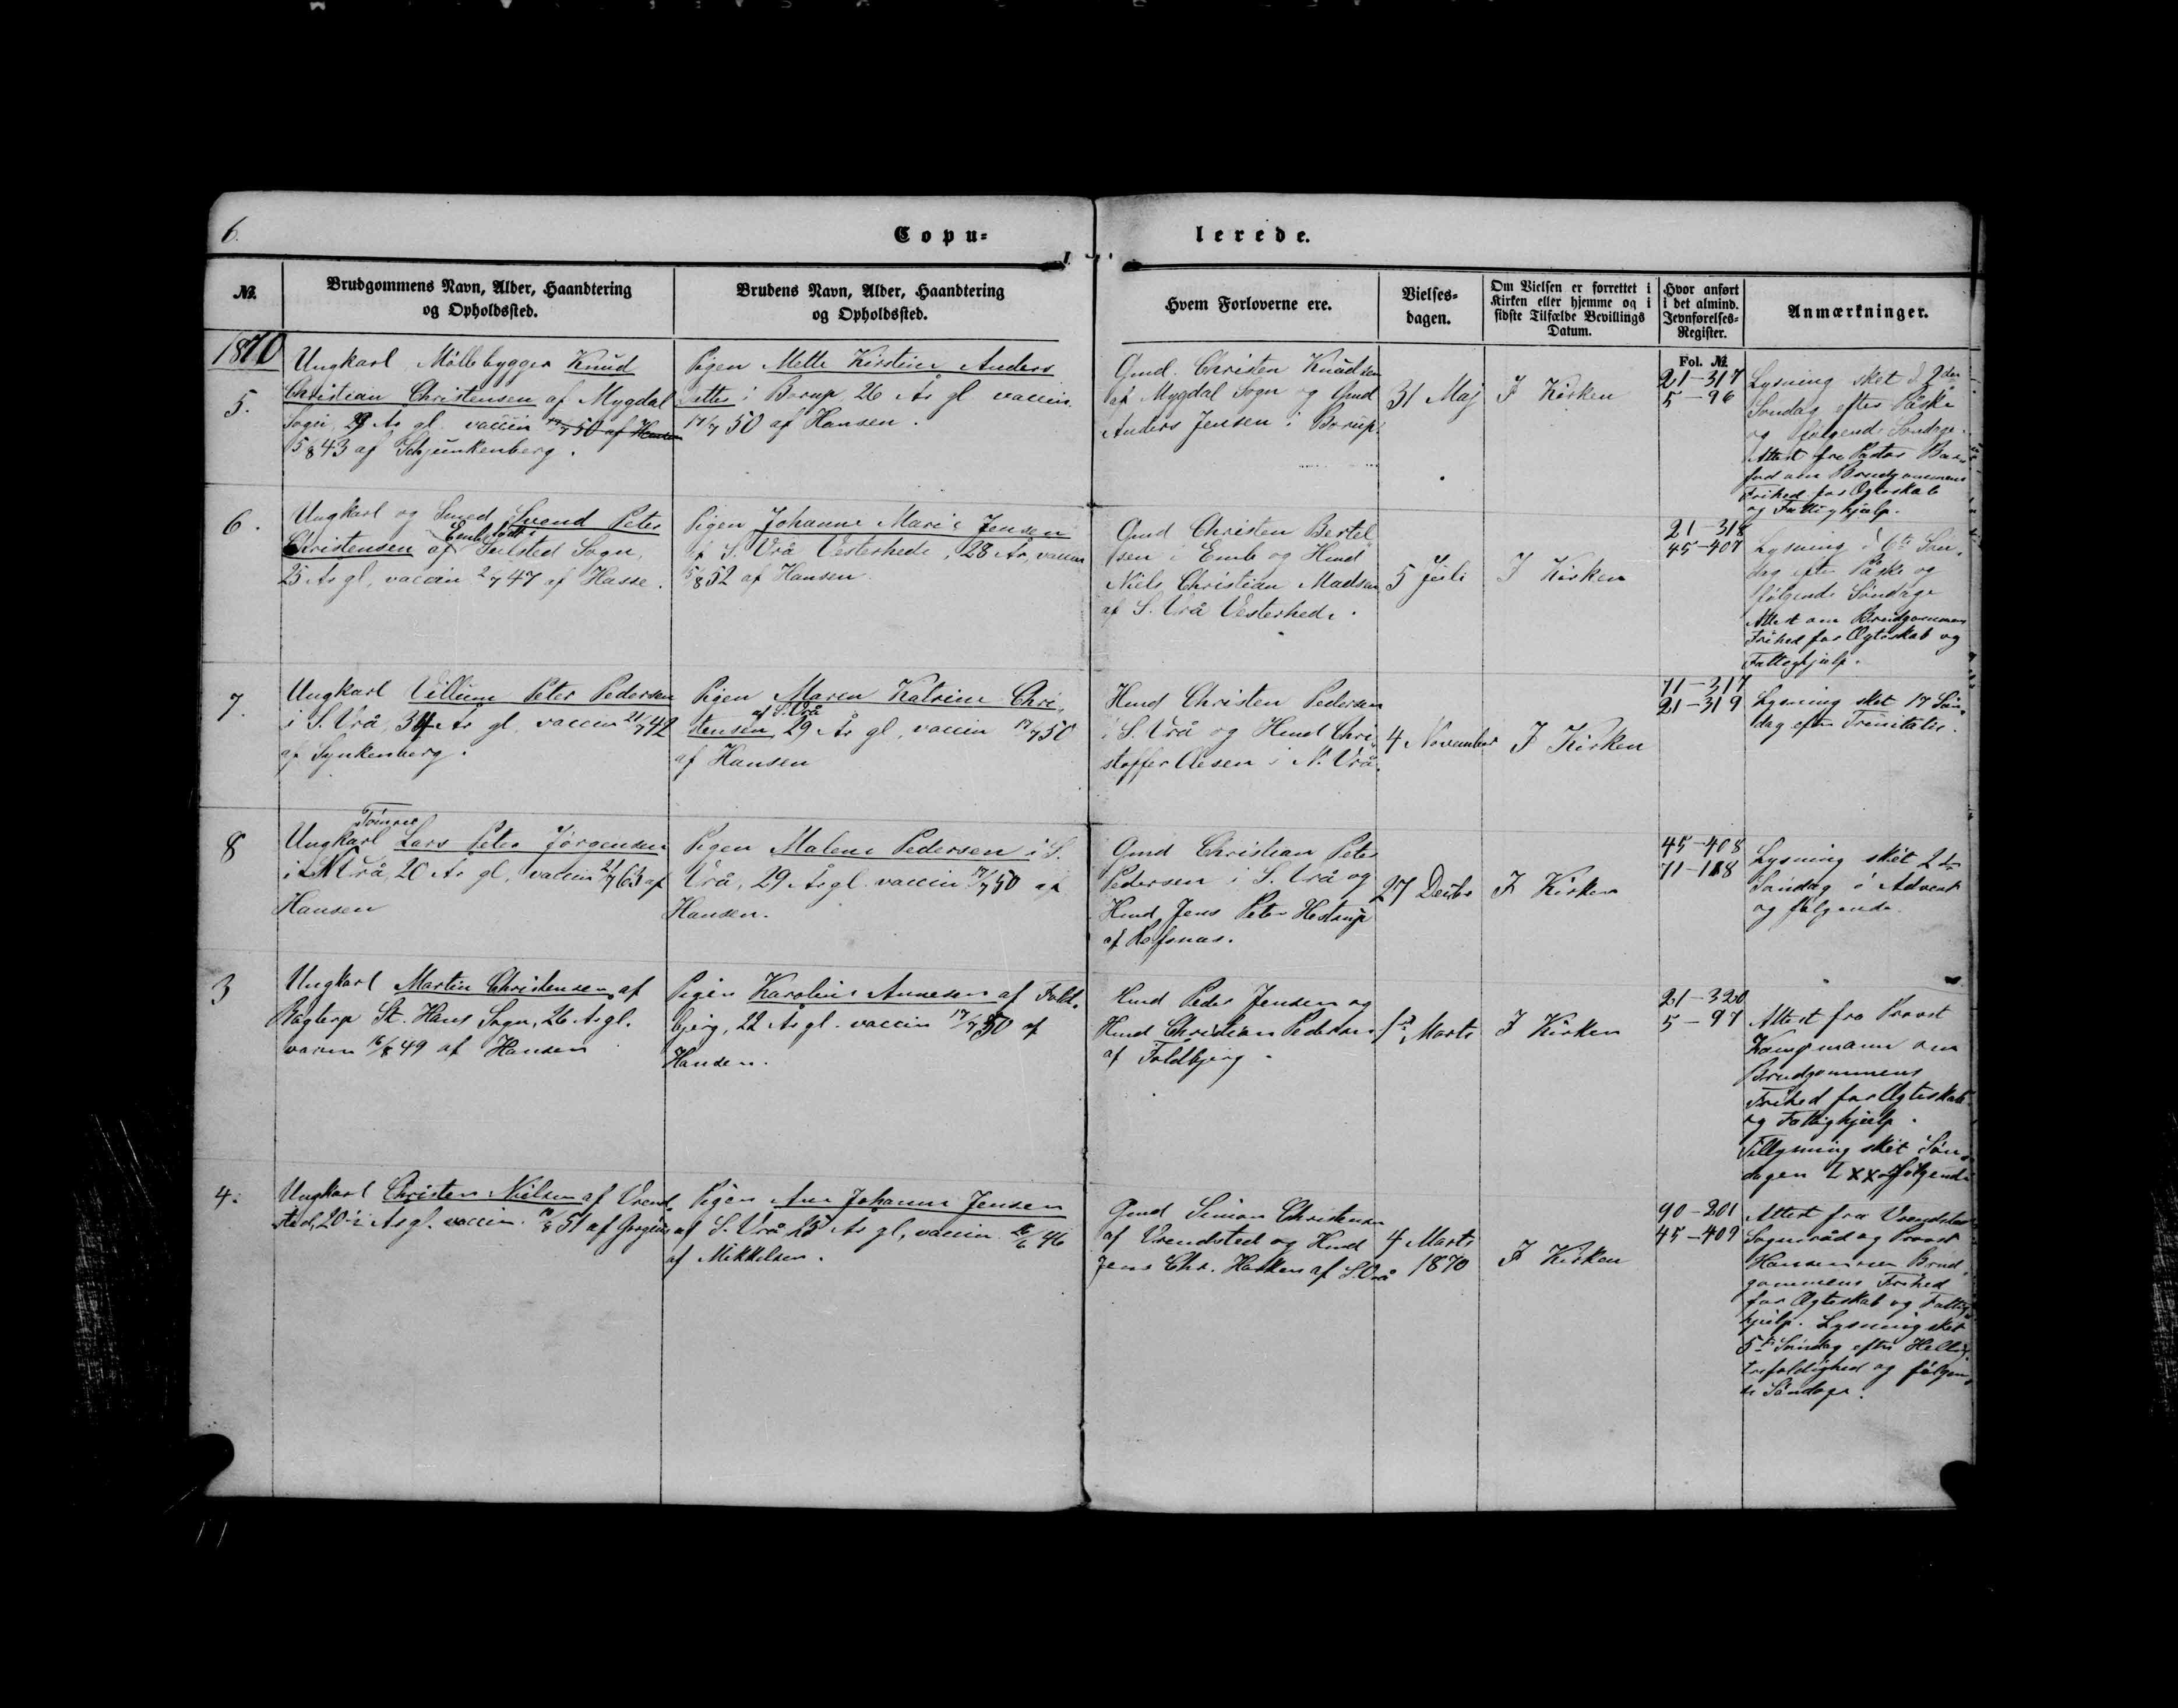 6.
Copu=
lerede.
№.
Brudgommens Navn, Alder, Haandtering
og Opholdssted.
Brudens Navn, Alder, Haandtering
og Opholdssted.
Hvem Forloverne ere.
Vielses=
dagen.
Om Vielsen er forrettet i
Kirken eller hjemme og i
sidste Tilfælde Bevillings
Datum.
Hvor anført
i det almind.
Jevnførelses=
Register.
Fol. №
Anmærkninger.
1870
5.
Ungkarl Møllebygger Knud
Christian Christensen af Mygdal
Sogn, År gl. vaccin 17/7 50 af Hansen
15/8 43 af Schjunkenberg.
Pigen Mette Kirstine Anders
datter i Borup 26 År gl vaccin.
17/7 50 af Hansen.
Gmd. Christen Knudsen
af Mygdal Sogn og Gmd
Anders Jensen i Borup.
31 Maj
I Kirken
21-317
5-96
Lysning sket d. 2den
Søndag efter Påske
og følgende Søndage.
Attest fra Pastor
om Brudgommens
Frihed for Ægteskab
og Fattighjælp.
6.
Ungkarl og Smed Svend Peter
Christensen af Sogn,
25 År gl, vaccin 2/7 47 af Hasse.
Pigen Johanne Marie Jensen
af S. Vrå Vesterhede, 28 År, vaccin
15/8 52 af Hansen.
Gmd Christen Bertel
sen i Emb og Hmd
Niels Christian Madsen
af S. Vrå Vesterhede.
5 Juli
I Kirken
21-318
45-407
Lysning i 6te Søn
dag efter Påske og
følgende Søndage
Attest om Brudgommens
Frihed for Ægteskab og
Fattighjælp.
7.
Ungkarl Villum Peter Pedersen
i S. Vrå, 34 År gl, vaccin 21/7 42
af Synkenberg.
Pigen Maren Katrine Chri
af S. Vrå
stensen, 29 År gl, vaccin 17/7 50
af Hansen
Hmd Christen Pedersen
i S. Vrå og Hmd Chri
stoffer Olesen i N. Vrå.
4 November
I Kirken
71-317
21-319
Lysning sket 17 Søn
dag efter Trinitatis.
8
Tømrer
Ungkarl Lars Peter Jørgensen
i N Vrå, 20 År gl, vaccin 21/7 63 af
Hansen
Pigen Malene Pedersen i S.
Vrå, 29 År gl. vaccin 17/7 50 af
Hansen.
Gmd Christian Peter
Pedersen i S. Vrå og
Hmd Jens Peter Hestrup
af Refsnæs.
27 Decbr
I Kirken
45-408
71-118
Lysning skét 2den
Søndag i Advent
og følgende.
3
Ungkarl Martin Christensen af
Bagterp St. Hans Sogn, 26 År gl.
vaccin 16/8 49 af Hansen
Pigen Karoline Annesen af Fold
bjerg, 22 År gl. vaccin 17/7 50 af
Hansen.
Hmd Peder Jensen og
Hmd Christian Pedersen
af Foldbjerg.
1ste Marts
I Kirken
21-320
5-97
Attest fra Provst
Kampmann om
Brudgommens
Frihed for Ægteskab
og Fattighjælp.
Tillysning skét Søn
dagen og følgende
4.
Ungkarl Christen Nielsen af Vrend
sted, År gl. vaccin. 51 af
Pigen Ane Johanne Jensen
af S. Vrå, 25 År gl, vaccin 26/6 46
af Mikkelsen.
Gmd Simon Christensen
af Vrendsted og Hmd
Jens Chr. af S. Vrå
4 Marts
1870
I Kirken
90-201
45-409
Attest fra Vrendsted
Sogneråd og Provst
Hansen om Brud
gommens Frihed
for Ægteskab og Fattig
hjælp. Lysning sket
5te Søndag efter Hellig
trefoldighed og følgen
de Søndage.